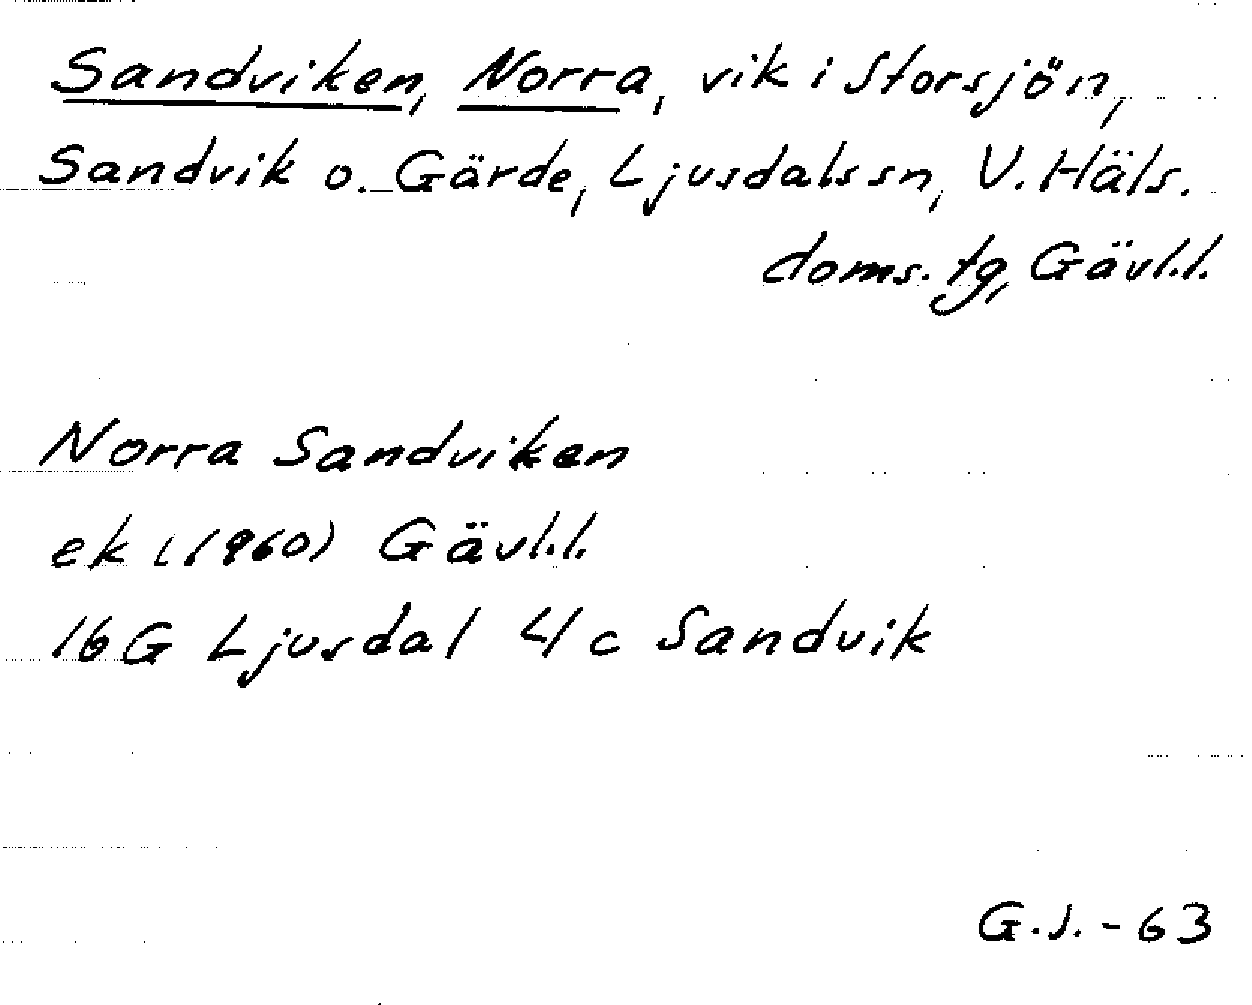 Sandviken, Norra, vik i Storsjön,
Sandvik o. Gärde, Ljusdals sn, V. Häls.
doms. tg, Gävl.l.
Norra Sandviken
ek (1960) Gävl.l.
16G Ljusdal 4/c Sandvik
G.J. - 63